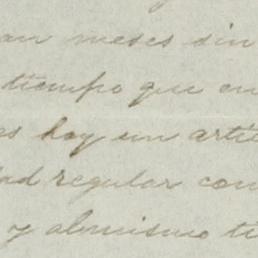 an meses sin
tiempo que en
es hoy un artí
ad regular con
y al mismo ti